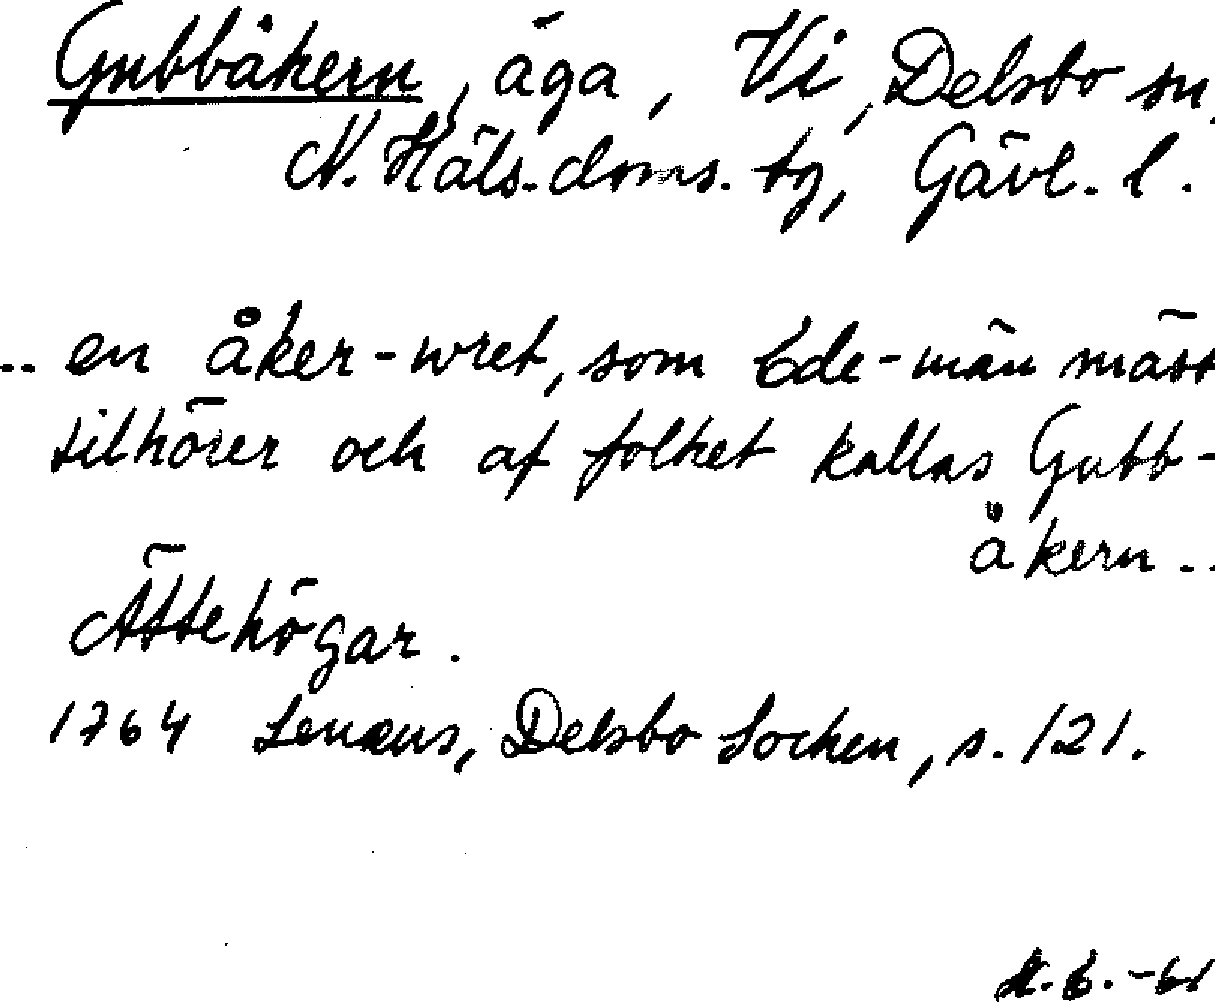 Gubbåkern, äga, Vi, Delsbo sn,
N. Häls. doms. tg, Gävl. l.
.. en åker-wret, som Ede-män mäst
tilhörer och af folket kallas Gubb-
åkern ..
Ättehögar.
1764 Lenæus, Delsbo Socken, s. 121.